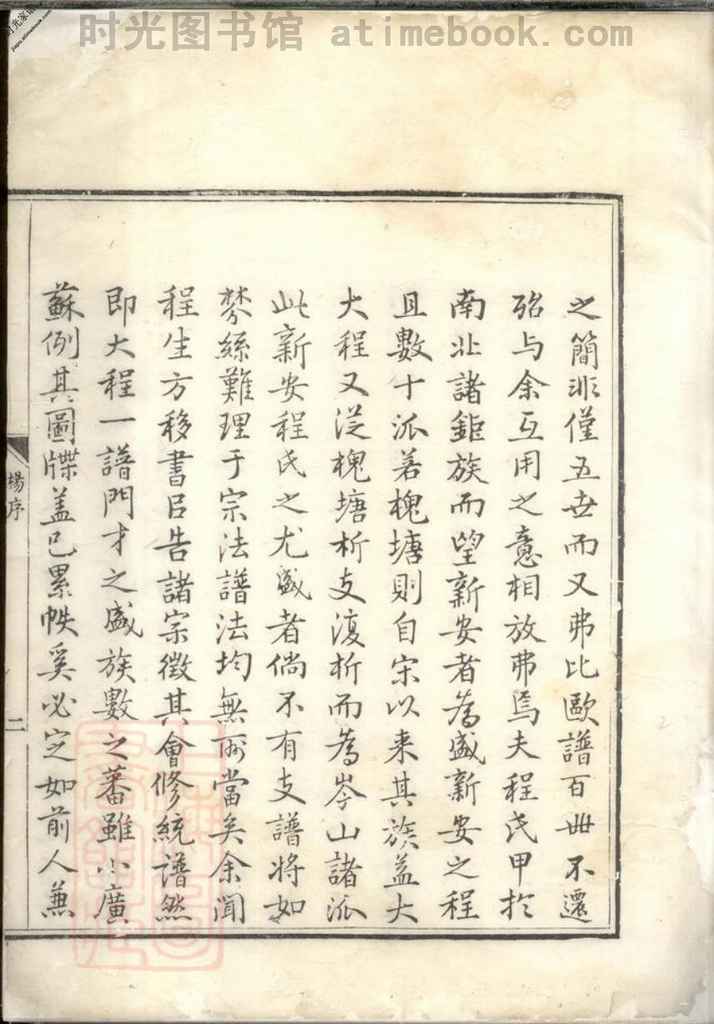 时光图书馆 atimebook.com
之簡非僅五世而又弗比歐譜百世不遷
殆与余互用之意相放弗焉夫程氏甲於
南北諸鉅族而望新安者為盛新安之程
且數十派若槐塘則自宋以来其族盖大
大程又从槐塘析支復析而為岑山諸派
此新安程氏之尤盛者倘不有支譜将如
棼絲難理于宗法譜法均無所當矣余闻
程生方移書吕告諸宗徵其會修統譜然
即大程一譜門才之盛族數之蕃雖小廣
蘇例其圖牒盖已累帙奚必定如前人兼
楊序
二